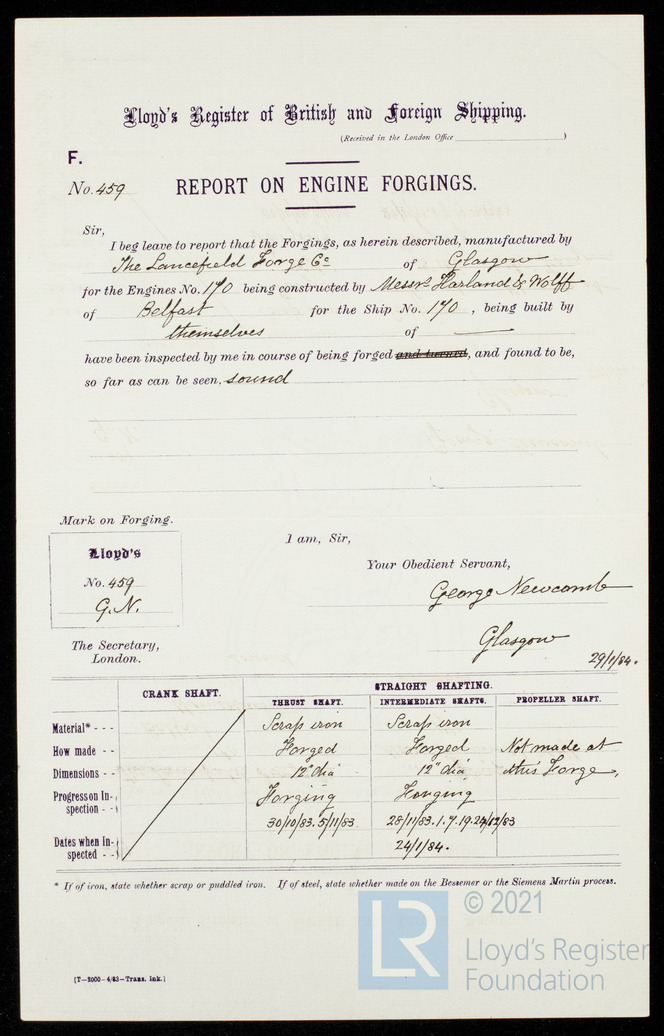 Lloyd's Register of British and Foreign Shipping.
(Received in the London Office )
F.
No. 459 REPORT ON ENGINE FORGINGS.
Sir,
I beg leave to report that the Forgings, as herein described, manufactured by
The Lancefield Forge Co of Glasgow
for the Engines No. 170 being constructed by Messrs Harland & Wolff
of Belfast for the Ship No. 170, being built by
themselves of —
have been inspected by me in course of being forged and turned, and found to be,
so far as can be seen, sound
Mark on Forging.
I am, Sir,
Lloyd's
Your Obedient Servant,
No. 459
George Newcomb
G.N.
Glasgow
The Secretary,
London.
29/1/84.
CRANK SHAFT. STRAIGHT SHAFTING.
THRUST SHAFT. INTERMEDIATE SHAFTS. PROPELLER SHAFT.
Material* - - - Scrap iron Scrap iron
How made - - Forged Forged Not made at
Dimensions - - 12" dia 12" dia this Forge,
Progress on In- Forging Forging
spection - -
30/10/83. 5/11/83 28/11/83. 1. 7. 19. 24/12/83
Dates when In- 24/1/84.
spected - -
* If of iron, state whether scrap or puddled iron. If of steel, state whether made on the Bessemer or the Siemens Martin process.
© 2021
LR Lloyd's Register
Foundation
(T—2000—4/83—Trans. Ink.)